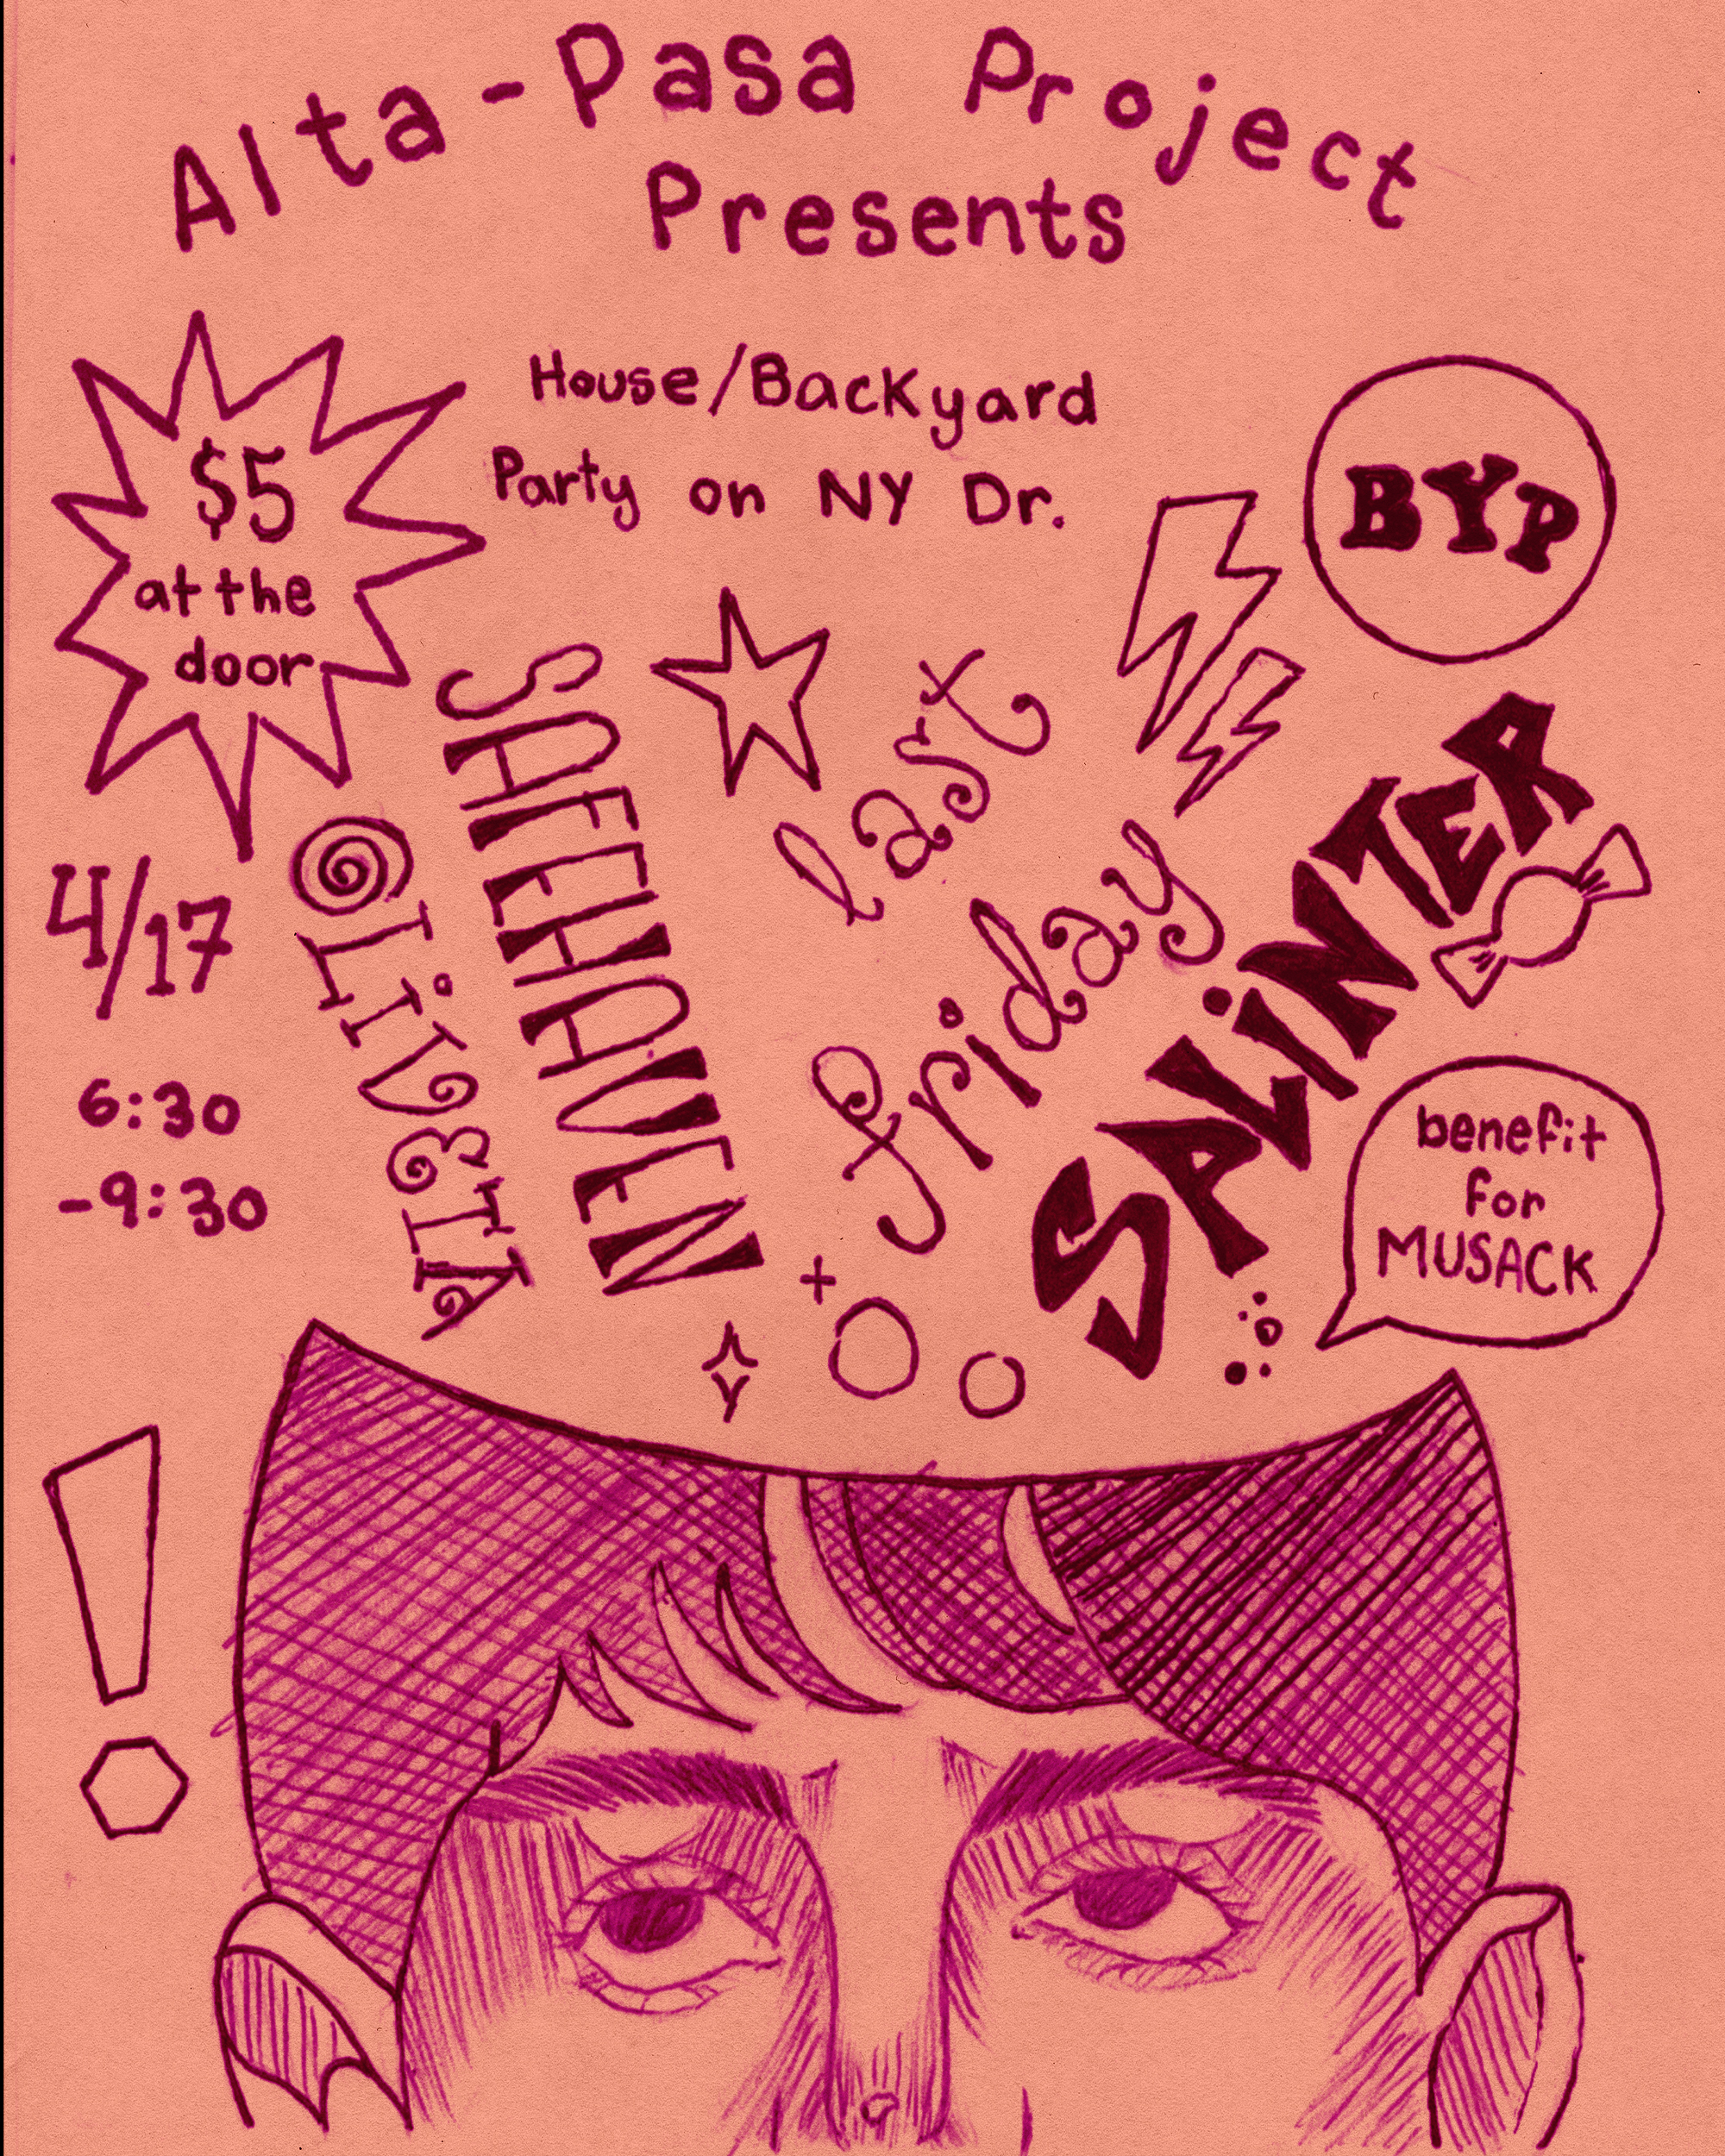 Alta-Pasa Project
Presents
$5
at the
door
House/Backyard
Party on NY Dr.
BYP
4/17
6:30
-9:30
OLiVETA
SAFEHAVEN
last
friday
SALiNTER
benefit
for
MUSACK